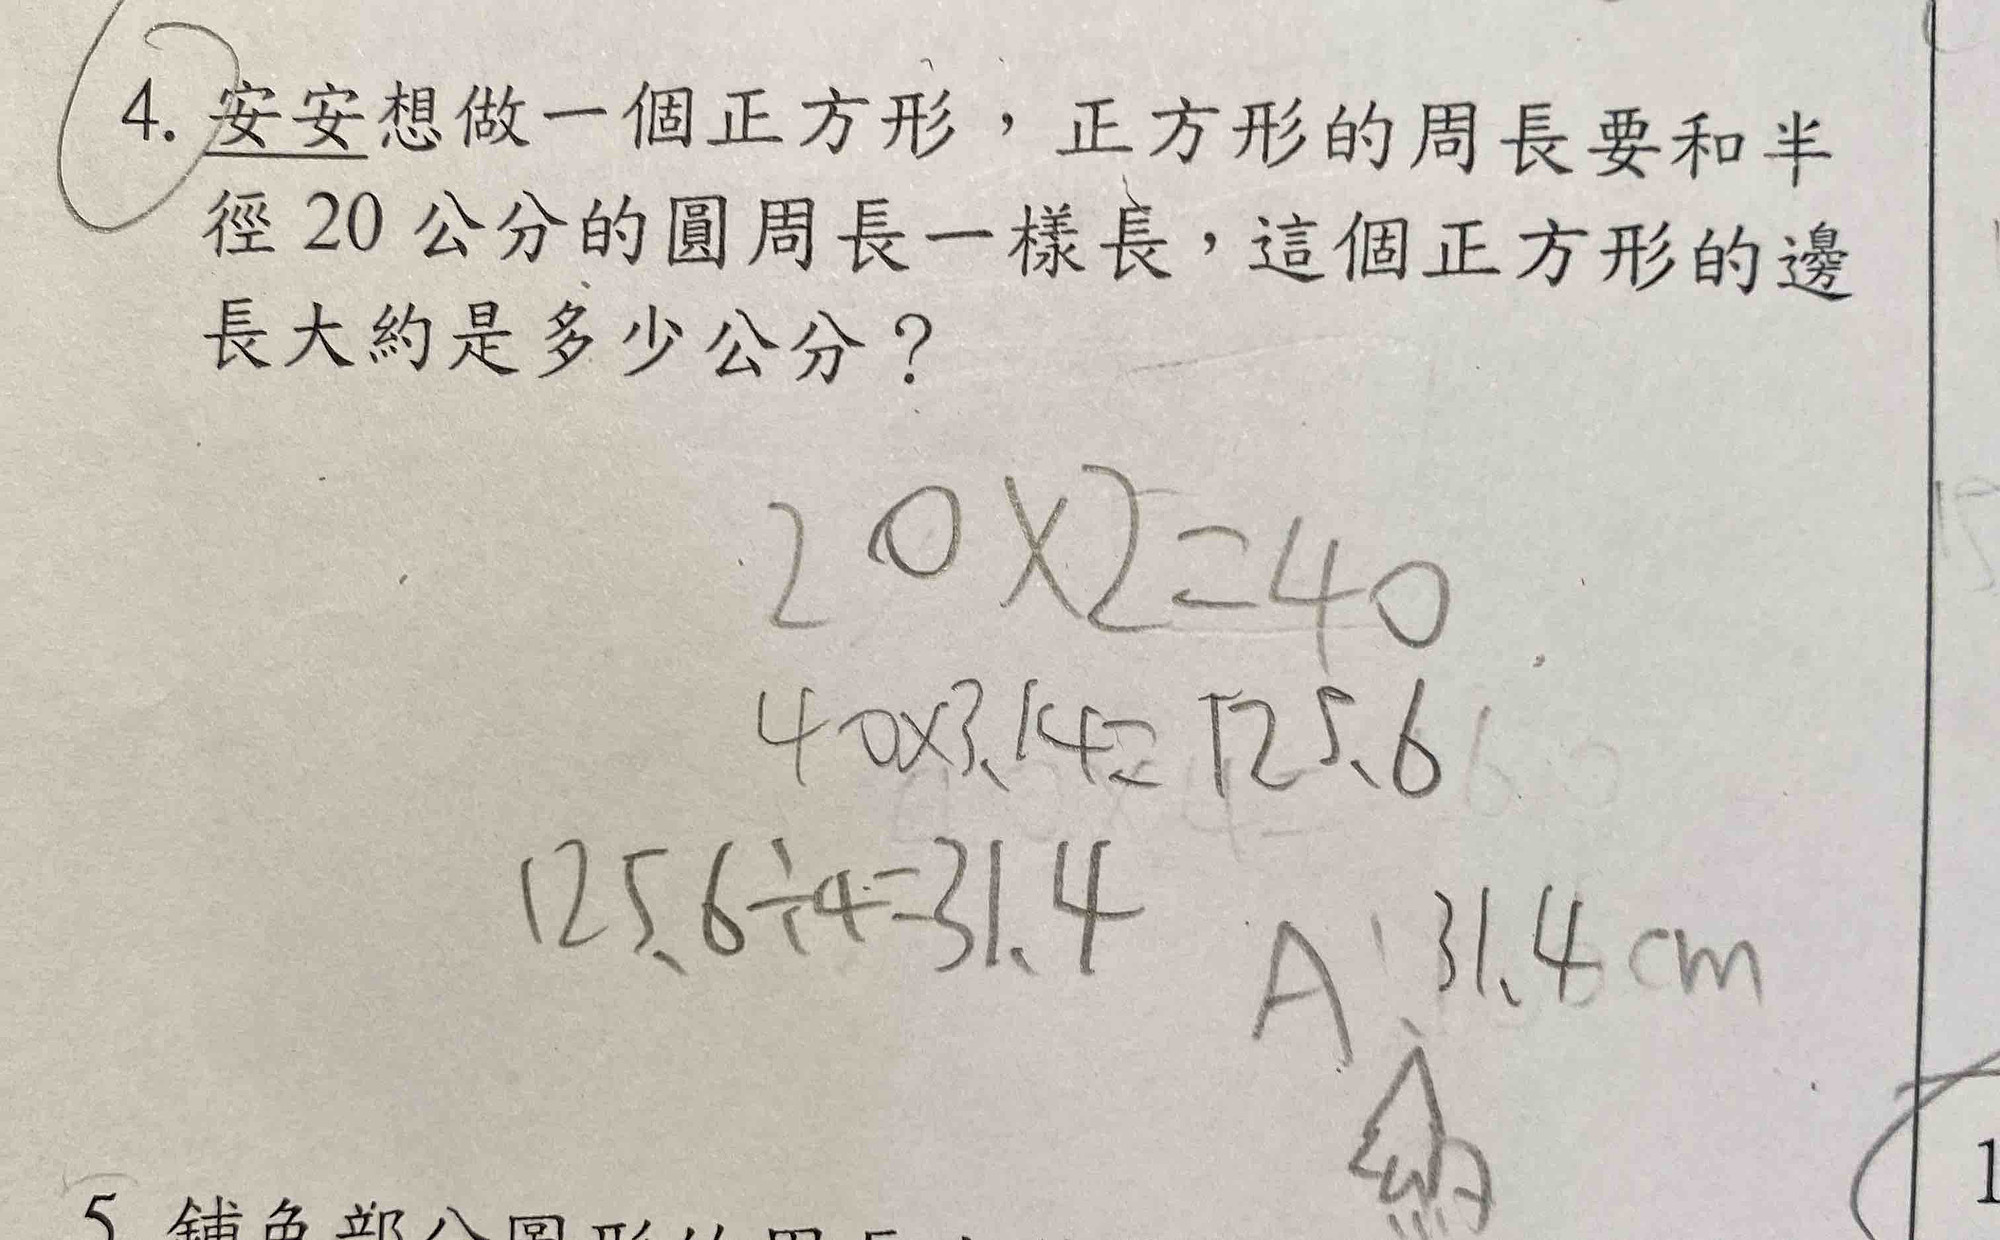 4. 安安想做一個正方形，正方形的周長要和半
徑 20 公分的圓周長一樣長，這個正方形的邊
長大約是多少公分？
20×2=40
40×3.14=125.6
125.6÷4=31.4
A: 31.4cm
約
5. 鋪色部分圖形的周長
1